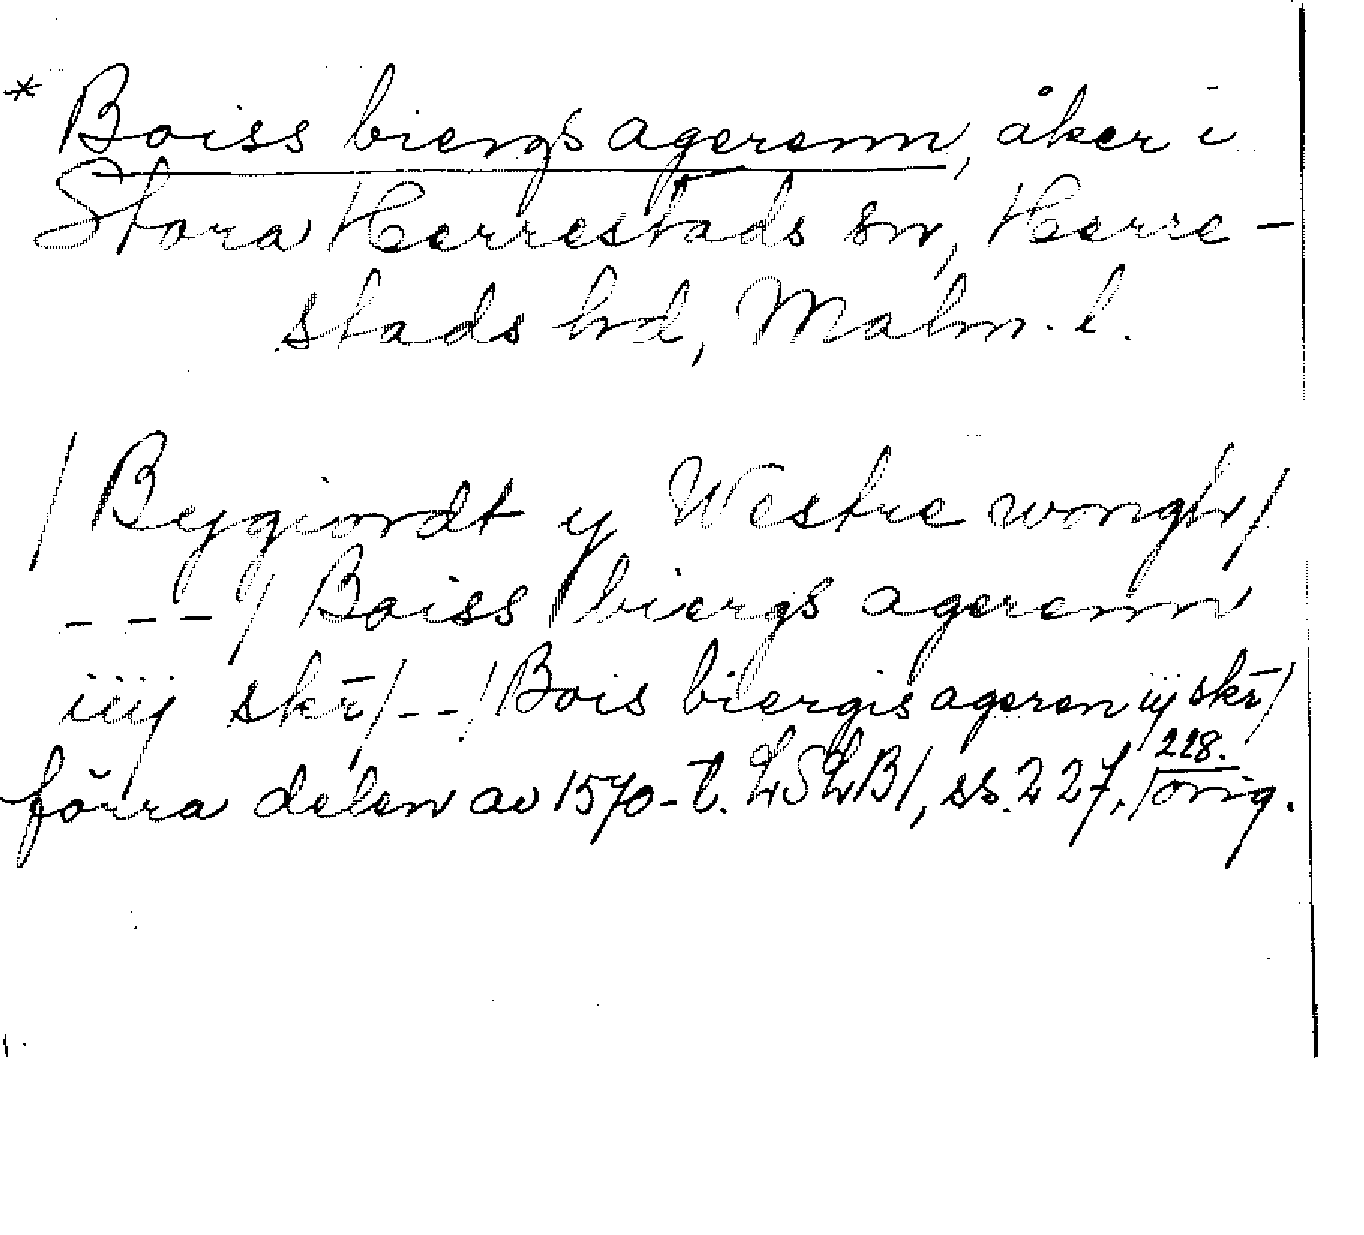 * Boiss biergs agerenn, åker i
Stora Herrestads sn, Herre-
stads hd, Malm. l.
/ Bygiordt y Westre wongh/
---/ Boiss biergs agerenn
iiij skr̄/--/ Bois biergis ageren iij skr̄/
förra delen av 1570-t. LSLB1, ss. 227, 228. /orig.